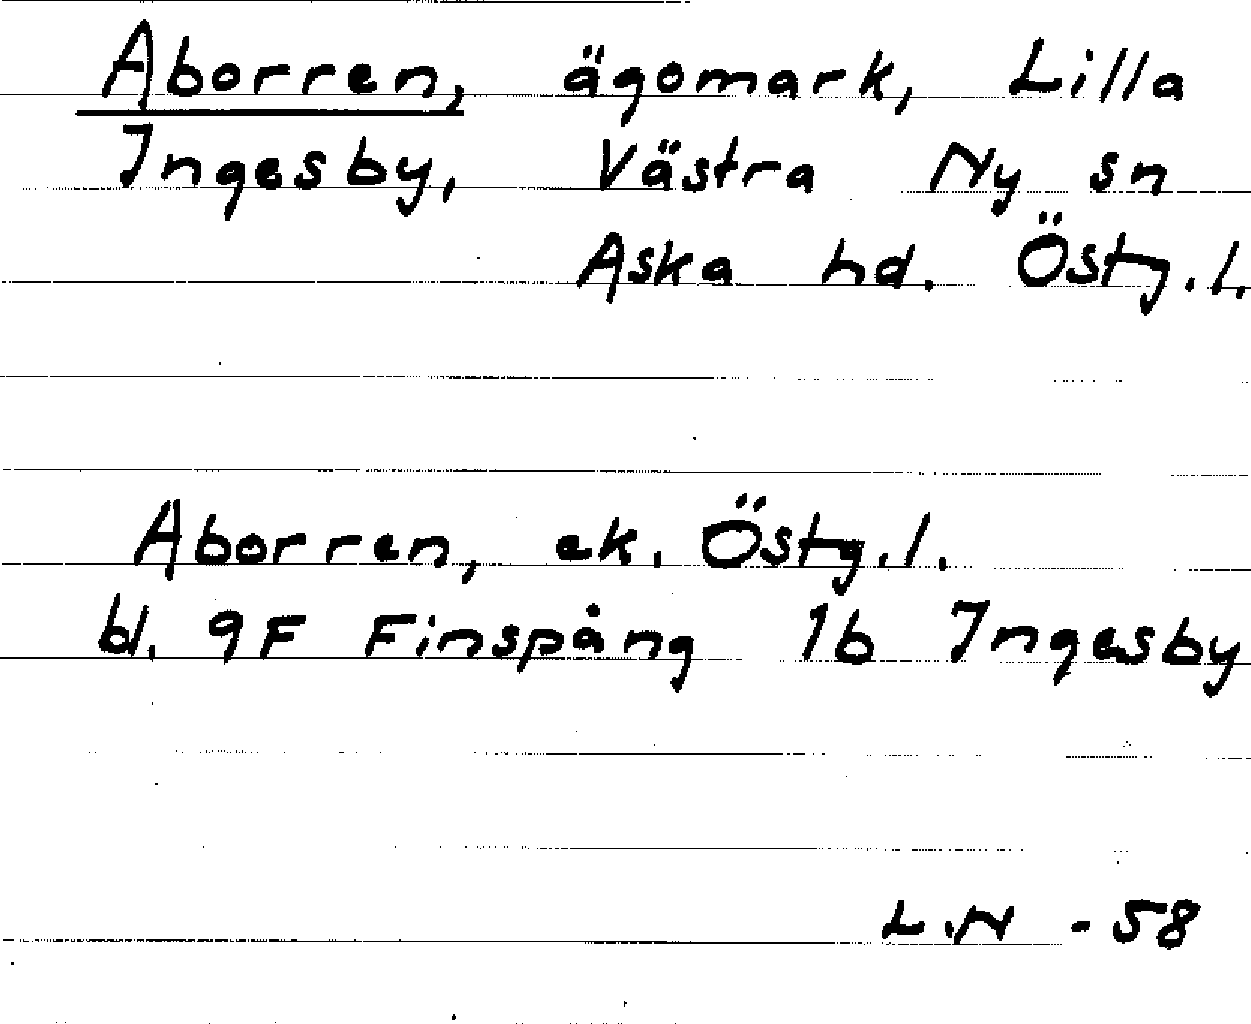 Aborren, ägomark, Lilla
Ingesby, Västra Ny sn
Aska hd. Östg.l.
Aborren, ek. Östg.l.
bl. 9F Finspång 1b Ingesby
L.N -58